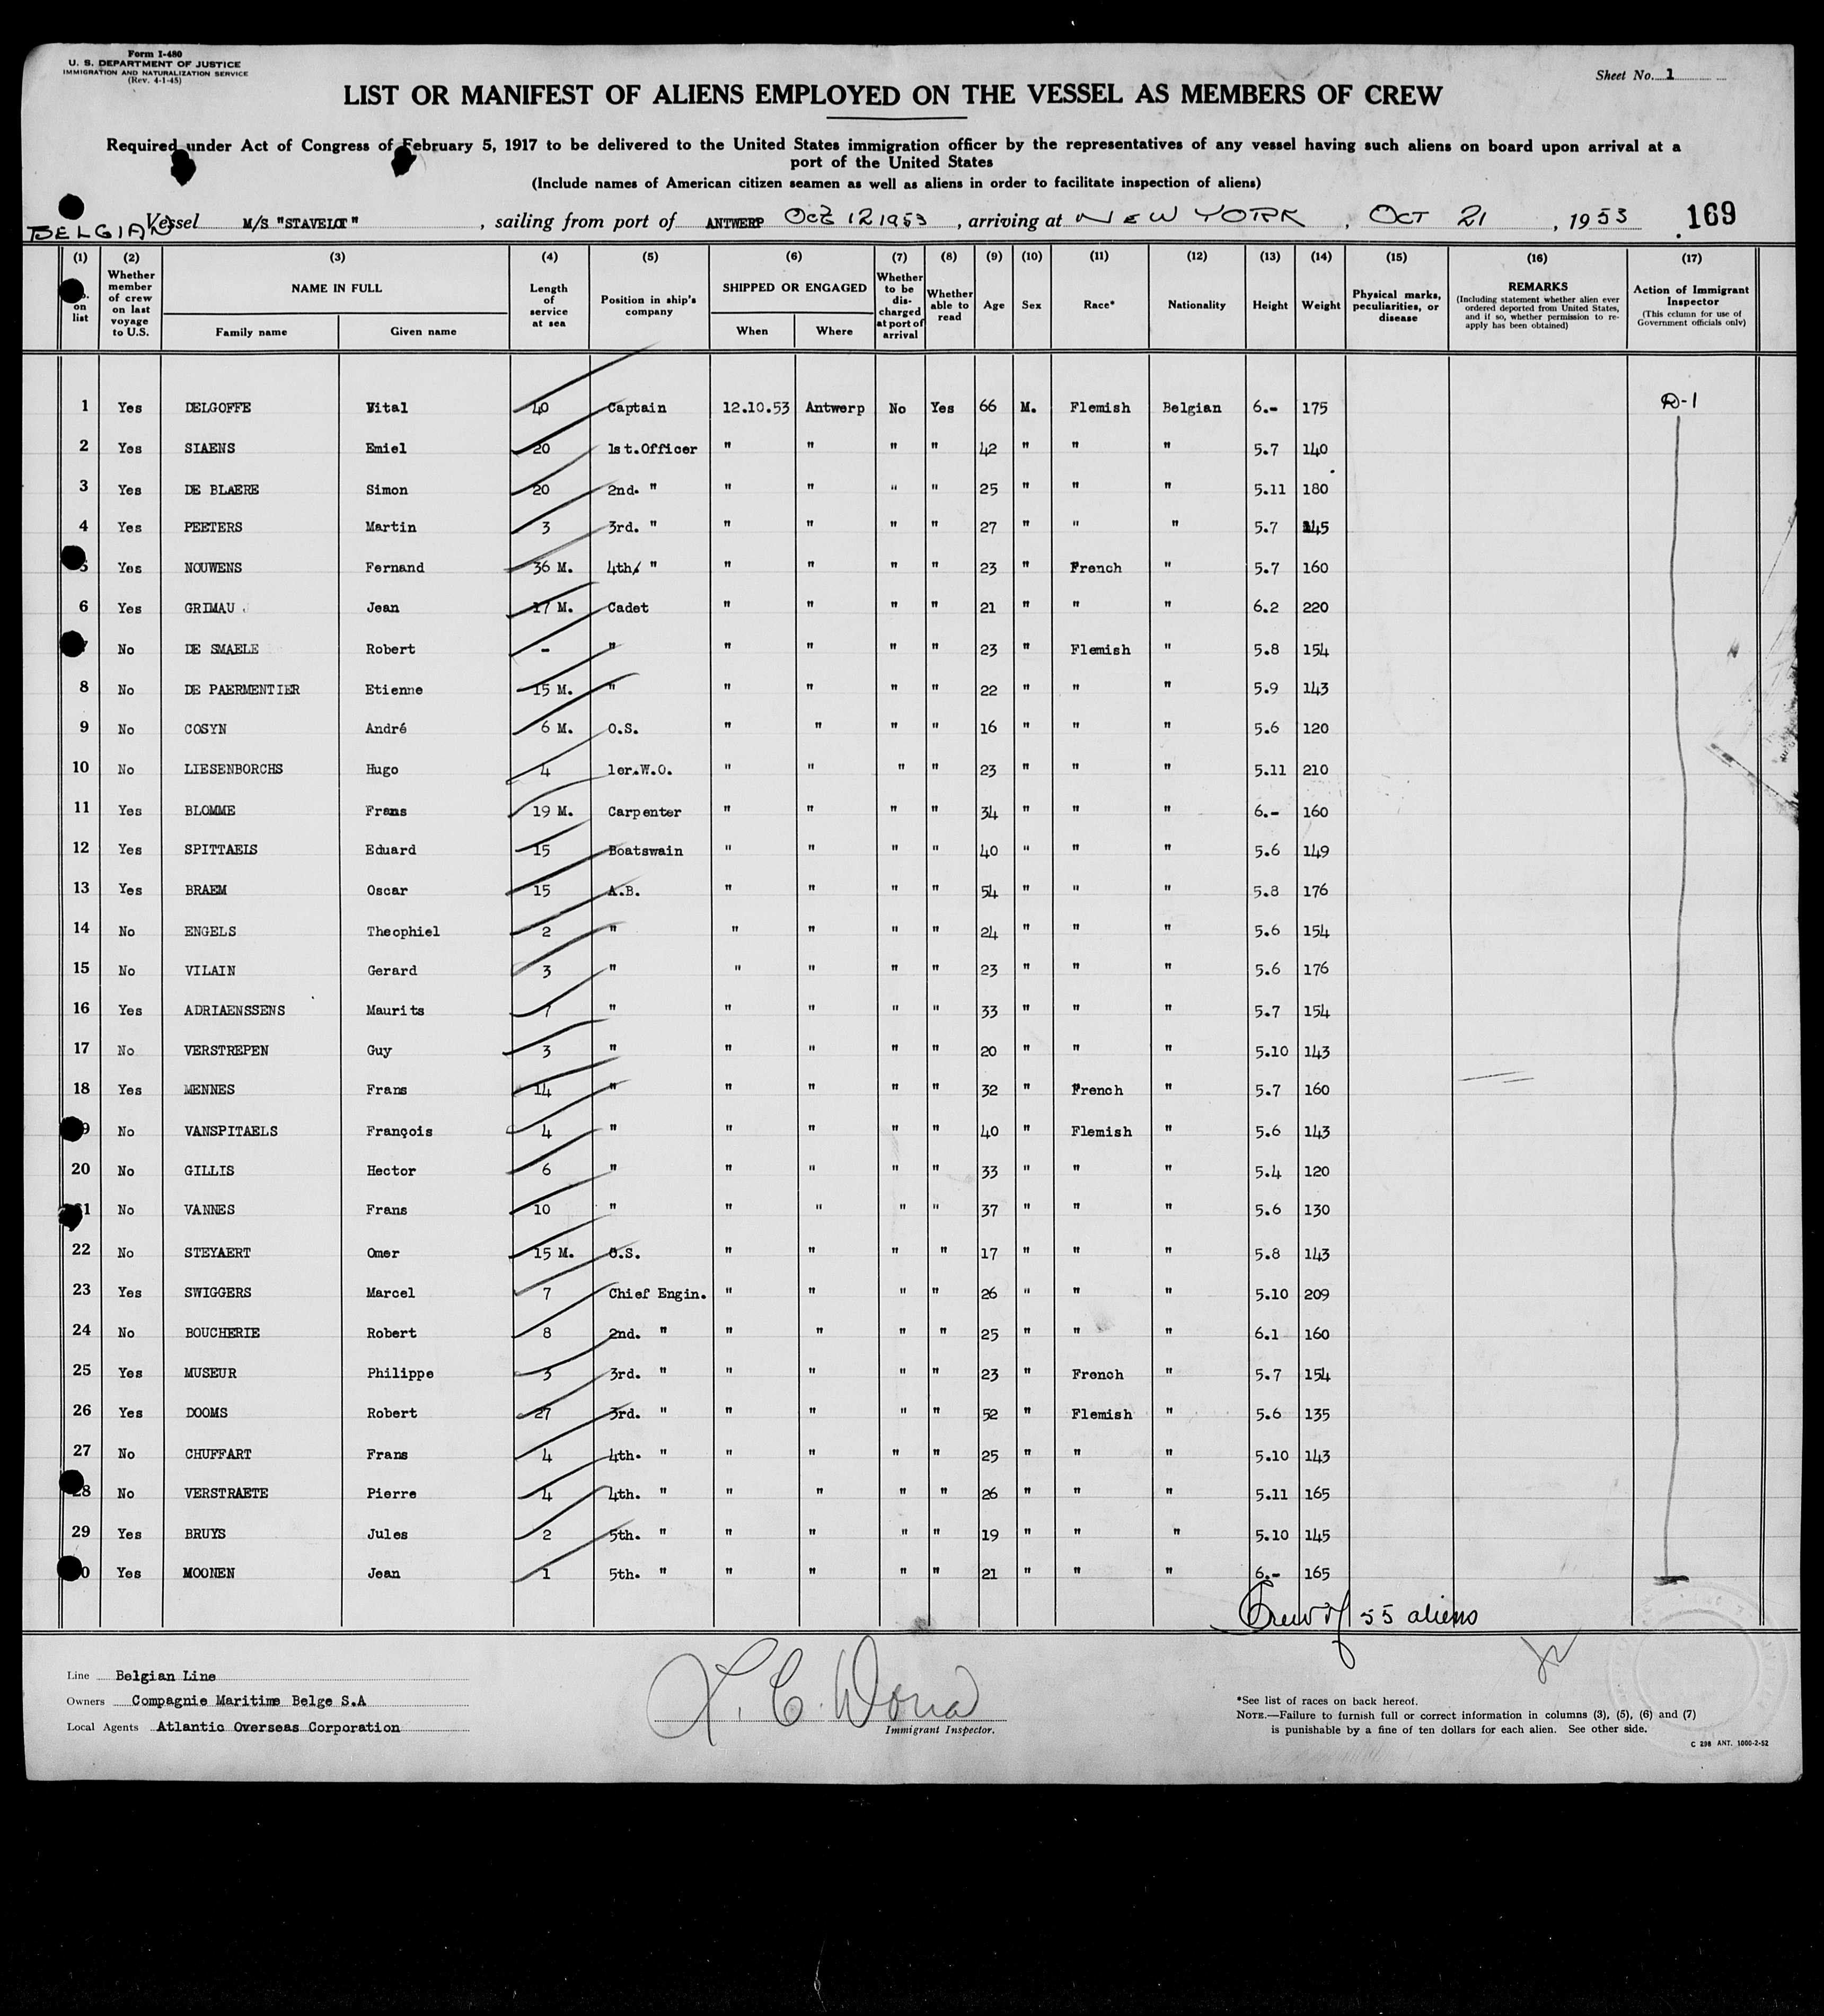 Form I-480
U. S. DEPARTMENT OF JUSTICE
IMMIGRATION AND NATURALIZATION SERVICE
(Rev. 4-1-45)
Sheet No. 1
LIST OR MANIFEST OF ALIENS EMPLOYED ON THE VESSEL AS MEMBERS OF CREW
Required under Act of Congress of February 5, 1917 to be delivered to the United States immigration officer by the representatives of any vessel having such aliens on board upon arrival at a
port of the United States
(Include names of American citizen seamen as well as aliens in order to facilitate inspection of aliens)
BELGIAN Vessel M/S "STAVELOT" , sailing from port of ANTWERP Oct 12 1953 , arriving at NEW YORK , OCT 21 , 1953 169
(1) (2) (3) (4) (5) (6) (7) (8) (9) (10) (11) (12) (13) (14) (15) (16) (17)
on list
Whether member of crew on last voyage to U.S.
NAME IN FULL
Family name Given name
Length of service at sea
Position in ship's company
SHIPPED OR ENGAGED
When Where
Whether to be discharged at port of arrival
Whether able to read
Age Sex Race* Nationality Height Weight
Physical marks, peculiarities, or disease
REMARKS
(Including statement whether alien ever ordered deported from United States, and if so, whether permission to re-apply has been obtained)
Action of Immigrant Inspector
(This column for use of Government officials only)
1 Yes DELGOFFE Vital 40 Captain 12.10.53 Antwerp No Yes 66 M. Flemish Belgian 6.- 175 D-1
2 Yes SIAENS Emiel 20 1st.Officer " " " " 42 " " " 5.7 140
3 Yes DE BLAERE Simon 20 2nd. " " " " " 25 " " " 5.11 180
4 Yes PEETERS Martin 3 3rd. " " " " " 27 " " " 5.7 145
5 Yes NOUWENS Fernand 36 M. 4th. " " " " " 23 " French " 5.7 160
6 Yes GRIMAU Jean 17 M. Cadet " " " " 21 " " " 6.2 220
7 No DE SMAELE Robert - " " " " " 23 " Flemish " 5.8 154
8 No DE PAERMENTIER Etienne 15 M. " " " " " 22 " " " 5.9 143
9 No COSYN André 6 M. O.S. " " " " 16 " " " 5.6 120
10 No LIESENBORCHS Hugo 4 1er.W.O. " " " " 23 " " " 5.11 210
11 Yes BLOMME Frans 19 M. Carpenter " " " " 34 " " " 6.- 160
12 Yes SPITTAELS Eduard 15 Boatswain " " " " 40 " " " 5.6 149
13 Yes BRAEM Oscar 15 A.B. " " " " 54 " " " 5.8 176
14 No ENGELS Theophiel 2 " " " " " 24 " " " 5.6 154
15 No VILAIN Gerard 3 " " " " " 23 " " " 5.6 176
16 Yes ADRIAENSSENS Maurits 7 " " " " " 33 " " " 5.7 154
17 No VERSTREPEN Guy 3 " " " " " 20 " " " 5.10 143
18 Yes MENNES Frans 14 " " " " " 32 " French " 5.7 160
19 No VANSPITAELS François 4 " " " " " 40 " Flemish " 5.6 143
20 No GILLIS Hector 6 " " " " " 33 " " " 5.4 120
21 No VANNES Frans 10 " " " " " 37 " " " 5.6 130
22 No STEYAERT Omer 15 M. O.S. " " " " 17 " " " 5.8 143
23 Yes SWIGGERS Marcel 7 Chief Engin. " " " " 26 " " " 5.10 209
24 No BOUCHERIE Robert 8 2nd. " " " " " 25 " " " 6.1 160
25 Yes MUSEUR Philippe 3 3rd. " " " " " 23 " French " 5.7 154
26 Yes DOOMS Robert 27 3rd. " " " " " 52 " Flemish " 5.6 135
27 No CHUFFART Frans 4 4th. " " " " " 25 " " " 5.10 143
28 No VERSTRAETE Pierre 4 4th. " " " " " 26 " " " 5.11 165
29 Yes BRUYS Jules 2 5th. " " " " " 19 " " " 5.10 145
30 Yes MOONEN Jean 1 5th. " " " " " 21 " " " 6.- 165
Crew of 55 aliens
Line Belgian Line
Owners Compagnie Maritime Belge S.A
Local Agents Atlantic Overseas Corporation
Immigrant Inspector.
*See list of races on back hereof.
NOTE.—Failure to furnish full or correct information in columns (3), (5), (6) and (7)
is punishable by a fine of ten dollars for each alien. See other side.
C 298 ANT. 1000-2-52